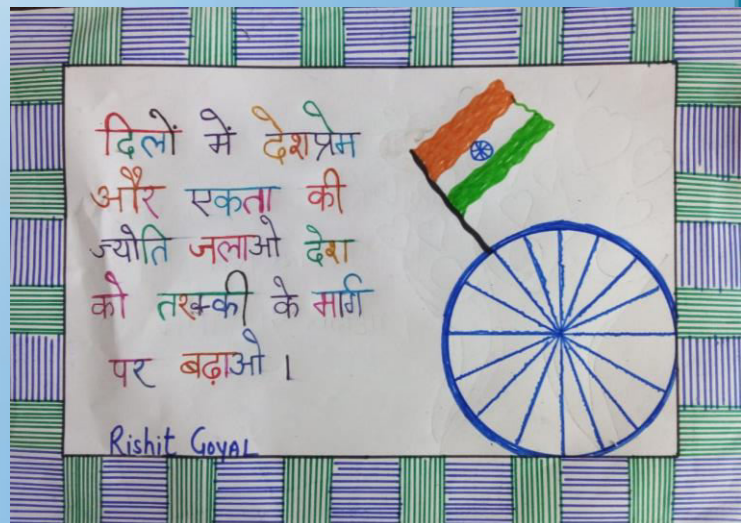 दिलों में देशप्रेम
और एकता की
ज्योति जलाओ देश
को तरक्की के मार्ग
पर बढ़ाओ ।
Rishit GOYAL